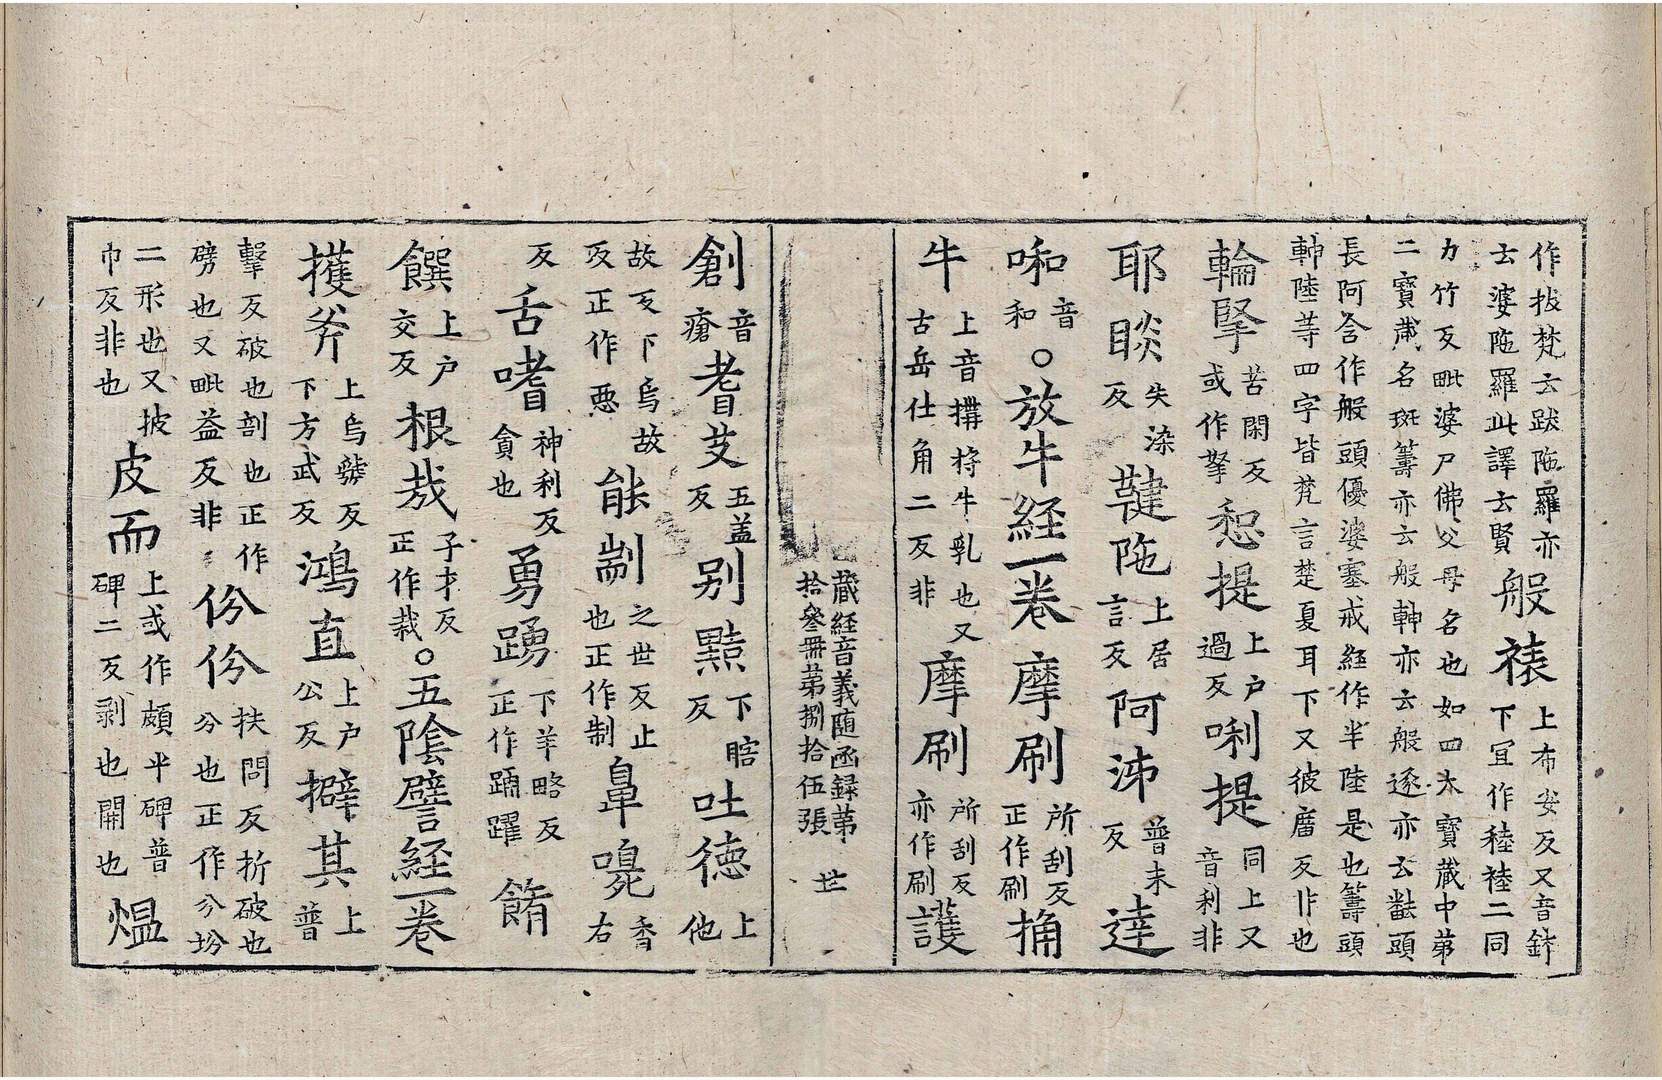 作拔梵云跋陁羅亦
士婆陁羅此譯云賢
般𧙕
上布安反又音鉢
下宜作稑䅞二同
力竹反毗婆尸佛父母名也如四大寶藏中第
二寶藏名斑籌亦云般軳亦云般逐亦云㽬頭
長阿含作般頭優婆塞戒經作半陸是也籌頭
軳陸等四字皆梵言楚夏耳下又彼庿反非也
輪掔
苦閑反
或作㧗
惒提
上戶
過反
唎提
同上又
音利非
耶睒
失染
反
鞬陁
上居
言反
阿沛
普未
反
達
啝
音
和
○放牛經一卷
摩刷
所刮反
正作刷
捅
牛
上音搆捋牛乳也又
古岳仕角二反非
摩刷
所刮反
亦作刷
護
藏經音義随函録第
拾叄冊第捌拾伍張
世
創
音
瘡
耆艾
五盖
反
别㸃
下
反
吐徳
上
他
故反下烏故
反正作惡
能
剬
之世反止
也正作制
鼻㱶
香
右
反
舌嗜
神利反
貪也
勇踴
下羊略反
正作踊躍
餚
饌
上戶
交反
根㦲
子才反
正作裁
○五陰譬經一卷
擭斧
上烏虢反
下方武反
鴻直
上戶
公反
擗其
上
普
擊反破也剖也正作
劈也又毗益反非
份份
扶問反折破也
分也正作分坋
二形也又披
巾反非也
皮而
上或作頗平碑普
碑二反剥也開也
熅